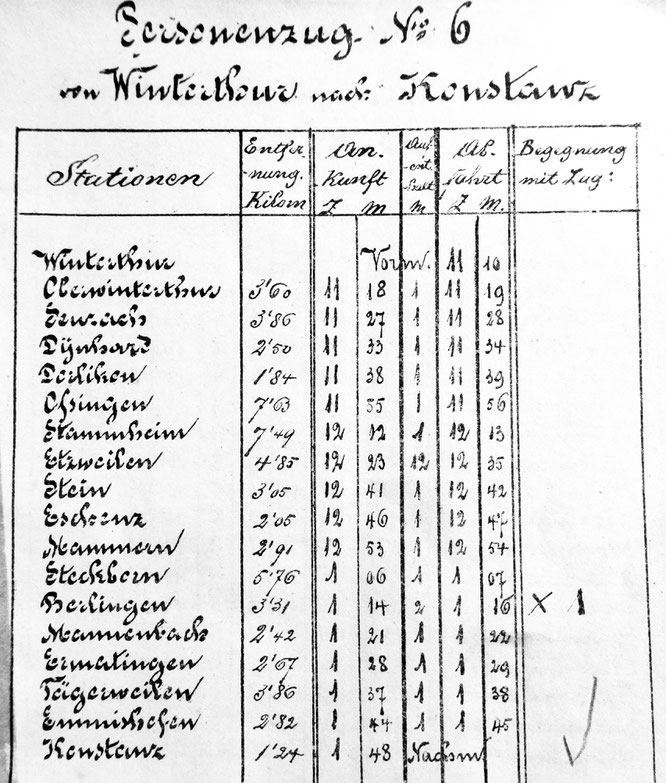 Personenzug No 6
von Winterthur nach Konstanz
Stationen Entfernung. Kilom Ankunft Z M Aufenthalt m Abfahrt Z M. Begegnung mit Zug:
Winterthur Vorm. 11 10
Oberwinterthur 3'60 11 18 1 11 19
Seuzach 3'86 11 27 1 11 28
Dynhard 2'50 11 33 1 11 34
1'84 11 38 1 11 39
Ossingen 7'63 11 55 1 11 56
Stammheim 7'49 12 12 1 12 13
Etzweilen 4'85 12 23 12 12 35
Stein 3'05 12 41 1 12 42
Eschenz 2'05 12 46 1 12 47
Mammern 2'91 12 53 1 12 54
Steckborn 5'76 1 06 1 1 07
Berlingen 3'31 1 14 2 1 16 x 1
Mannenbach 2'42 1 21 1 1 22
Ermatingen 2'67 1 28 1 1 29
Tägerweilen 3'86 1 37 1 1 38
Emmishofen 2'82 1 44 1 1 45
Konstanz 1'24 1 48 Nachm.